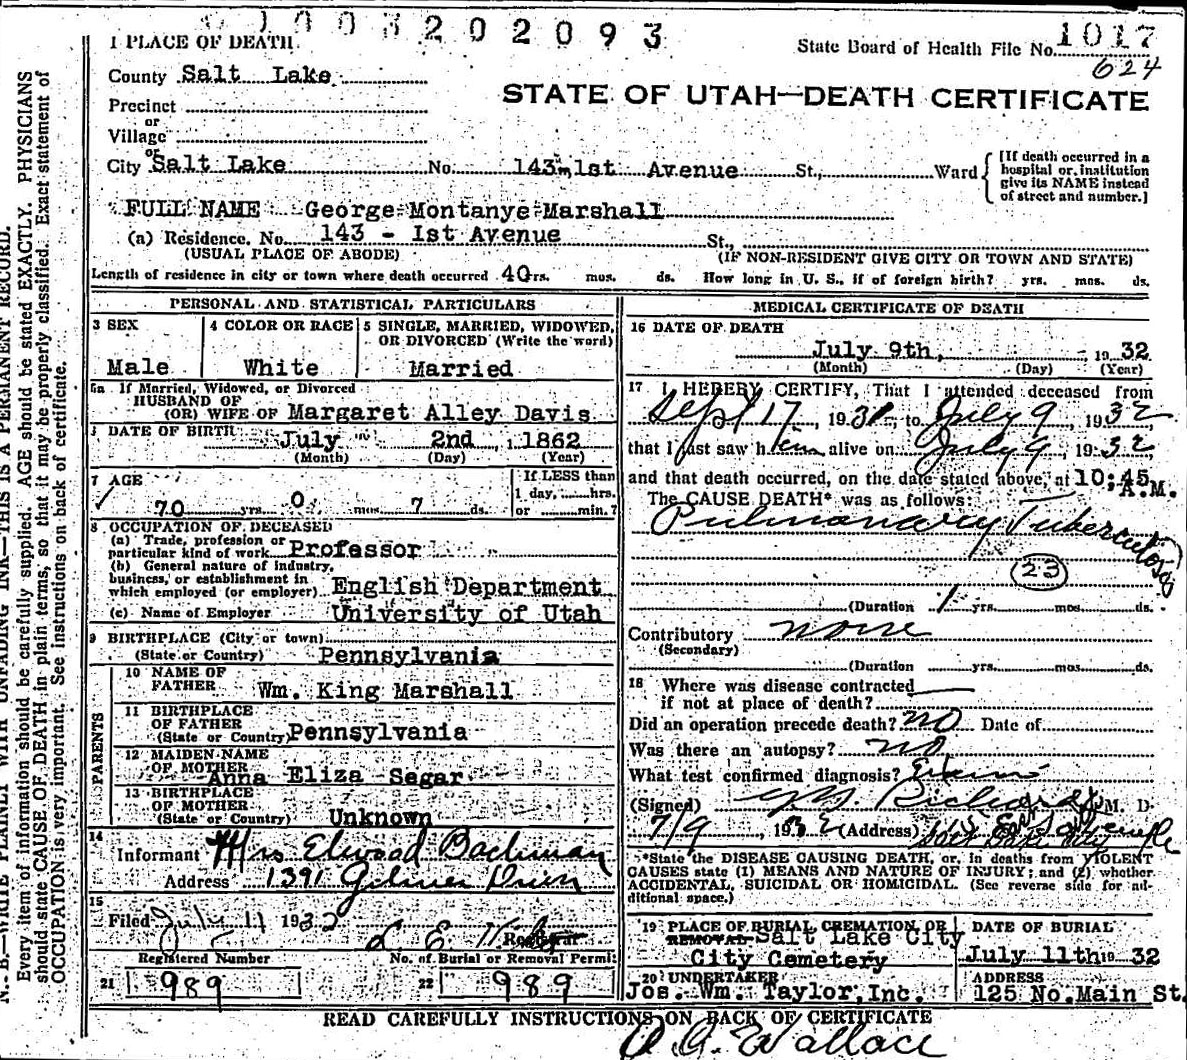 1003202093
1 PLACE OF DEATH
State Board of Health File No. 1017
624
County Salt Lake
STATE OF UTAH—DEATH CERTIFICATE
Precinct
or
Village
or
City Salt Lake No. 143 - 1st Avenue St., Ward
[If death occurred in a
hospital or institution
give its NAME instead
of street and number.]
FULL NAME George Montanye Marshall
(a) Residence. No. 143 - Ist Avenue St.,
(USUAL PLACE OF ABODE) (IF NON-RESIDENT GIVE CITY OR TOWN AND STATE)
Length of residence in city or town where death occurred 40 yrs. mos. ds. How long in U. S., if of foreign birth? yrs. mos. ds.
PERSONAL AND STATISTICAL PARTICULARS
3 SEX 4 COLOR OR RACE 5 SINGLE, MARRIED, WIDOWED,
OR DIVORCED (Write the word)
Male White Married
5a If Married, Widowed, or Divorced
HUSBAND OF
(OR) WIFE OF Margaret Alley Davis
DATE OF BIRTH July 2nd, 1862
(Month) (Day) (Year)
7 AGE If LESS than
1 day, hrs.
70 yrs. 0 mos. 7 ds. or min.?
8 OCCUPATION OF DECEASED
(a) Trade, profession or
particular kind of work Professor
(b) General nature of industry,
business, or establishment in
which employed (or employer) English Department
(c) Name of Employer University of Utah
9 BIRTHPLACE (City or town)
(State or Country) Pennsylvania
PARENTS
10 NAME OF
FATHER Wm. King Marshall
11 BIRTHPLACE
OF FATHER
(State or Country) Pennsylvania
12 MAIDEN NAME
OF MOTHER Anna Eliza Segar
13 BIRTHPLACE
OF MOTHER
(State or Country) Unknown
14
Informant Mrs Elwood Bachman
Address 1391 Gilmer Drive
15
Filed July 11 1932
L. E.
Registrar
Registered Number No. of Burial or Removal Permit
21 989 22 989
MEDICAL CERTIFICATE OF DEATH
16 DATE OF DEATH
July 9th, 1932
(Month) (Day) (Year)
17 I HEREBY CERTIFY, That I attended deceased from
Sept 17, 1931, to July 9, 1932
that I last saw him alive on July 9, 1932
and that death occurred, on the date stated above, at 10:45 A.M.
The CAUSE DEATH* was as follows:
Pulmonary Tuberculosis
23
(Duration 1 yrs. mos. ds.
Contributory none
(Secondary)
(Duration yrs. mos. ds.
18 Where was disease contracted
if not at place of death?
Did an operation precede death? no Date of
Was there an autopsy? no
What test confirmed diagnosis?
(Signed) Richards M. D.
7/9, 1932 (Address)
*State the DISEASE CAUSING DEATH, or, in deaths from VIOLENT
CAUSES state (1) MEANS AND NATURE OF INJURY; and (2) whether
ACCIDENTAL, SUICIDAL OR HOMICIDAL. (See reverse side for ad-
ditional space.)
19 PLACE OF BURIAL CREMATION OR DATE OF BURIAL
REMOVAL Salt Lake City
City Cemetery July 11th 1932
20 UNDERTAKER ADDRESS
Jos. Wm. Taylor, Inc. 125 No. Main St.
READ CAREFULLY INSTRUCTIONS ON BACK OF CERTIFICATE
Wallace
N. B.—WRITE PLAINLY WITH UNFADING INK—THIS IS A PERMANENT RECORD.
Every item of information should be carefully supplied. AGE should be stated EXACTLY. PHYSICIANS
should state CAUSE OF DEATH in plain terms, so that it may be properly classified. Exact statement of
OCCUPATION is very important. See instructions on back of certificate.